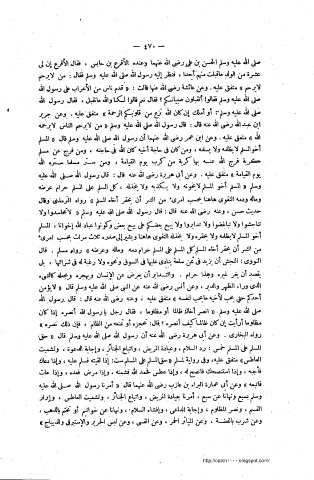 — ٤٧٠ —
صلى الله عليه وسلم الحسن بن علي رضي الله عنهما وعنده الأقرع بن حابس ، فقال الأقرع إن لي
عشرة من الولد ماقبلت منهم أحدا ، فنظر إليه رسول الله صلى الله عليه وسلم فقال : من لايرحم
لايرحم » متفق عليه . وعن عائشة رضي الله عنها قالت : « قدم ناس من الأعراب على رسول الله
صلى الله عليه وسلم فقالوا أتقبلون صبيانكم ؟ فقال نعم قالوا لكنا والله مانقبل ، فقال رسول الله
صلى الله عليه وسلم : أو أملك إن كان الله نزع من قلوبكم الرحمة » متفق عليه . وعن جرير
ابن عبدالله رضي الله عنه قال : قال رسول الله صلى الله عليه وسلم « من لايرحم الناس لايرحمه
الله » متفق عليه . وعن ابن عمر رضي الله عنهما أن رسول الله صلى الله عليه وسلم قال « المسلم
أخو المسلم لايظلمه ولا يسلمه ، ومن كان في حاجة أخيه كان الله في حاجته ، ومن فرج عن مسلم
كربة فرج الله عنه بها كربة من كرب يوم القيامة ، ومن ستر مسلما ستره الله
يوم القيامة » متفق عليه . وعن أبي هريرة رضي الله عنه قال : قال رسول الله صلى الله عليه
وسلم « المسلم أخو المسلم لايخونه ولا يكذبه ولا يخذله ، كل المسلم على المسلم حرام عرضه
وماله ودمه التقوى هاهنا بحسب امرئ من الشر أن يحقر أخاه المسلم » رواه الترمذي وقال
حديث حسن ، وعنه رضي الله عنه قال : قال رسول الله صلى الله عليه وسلم « لاتحاسدوا ولا
تناجشوا ولا تباغضوا ولا تدابروا ولا يبع بعضكم على بيع بعض وكونوا عباد الله إخوانا ، المسلم
أخو المسلم لايظلمه ولا يحقره ولا يخذله التقوى هاهنا ويشير إلى صدره ثلاث مرات بحسب امرئ
من الشر أن يحقر أخاه المسلم كل المسلم على المسلم حرام دمه وماله وعرضه » رواه مسلم . قال
النووي : النجش أن يزيد في ثمن سلعة ينادى عليها في السوق ونحوه ولا رغبة له في شرائها ، بل
يقصد أن يغر غيره وهذا حرام ، والتدابر أن يعرض عن الإنسان ويهجره ويجعله كالشيء
الذي وراء الظهر والدبر ، وعن أنس رضي الله عنه عن النبي صلى الله عليه وسلم قال « لايؤمن
أحدكم حتى يحب لأخيه مايحب لنفسه » متفق عليه ، وعنه رضي الله عنه قال : قال رسول الله
صلى الله عليه وسلم « انصر أخاك ظالما أو مظلوما ، فقال رجل يا رسول الله أنصره إذا كان
مظلوما أرأيت إن كان ظالما كيف أنصره ؟ قال : تحجزه أو تمنعه من الظلم ، فإن ذلك نصره »
رواه البخاري . وعن أبي هريرة رضي الله عنه أن رسول الله صلى الله عليه وسلم قال « حق
المسلم على المسلم خمس : رد السلام ، وعيادة المريض ، واتباع الجنائز ، وإجابة الدعوة ، وتشميت
العاطس » متفق عليه ، وفي رواية لمسلم « حق المسلم على المسلم ست : إذا لقيته فسلم عليه ، وإذا دعاك
فأجبه ، وإذا استنصحك فانصح له ، وإذا عطس فحمد الله فشمته ، وإذا مرض فعده ، وإذا مات
فاتبعه » وعن أبي عمارة البراء بن عازب رضي الله عنهما قال : « أمرنا رسول الله صلى الله عليه
وسلم بسبع ونهانا عن سبع ، أمرنا بعيادة المريض ، واتباع الجنائز ، وتشميت العاطس ، وإبرار
القسم ، ونصر المظلوم ، وإجابة الداعي ، وإفشاء السلام ، ونهانا عن خواتيم أو تختم بالذهب ،
وعن شرب بالفضة ، وعن المياثر الحمر ، وعن القسي ، وعن لبس الحرير والإستبرق والديباج »